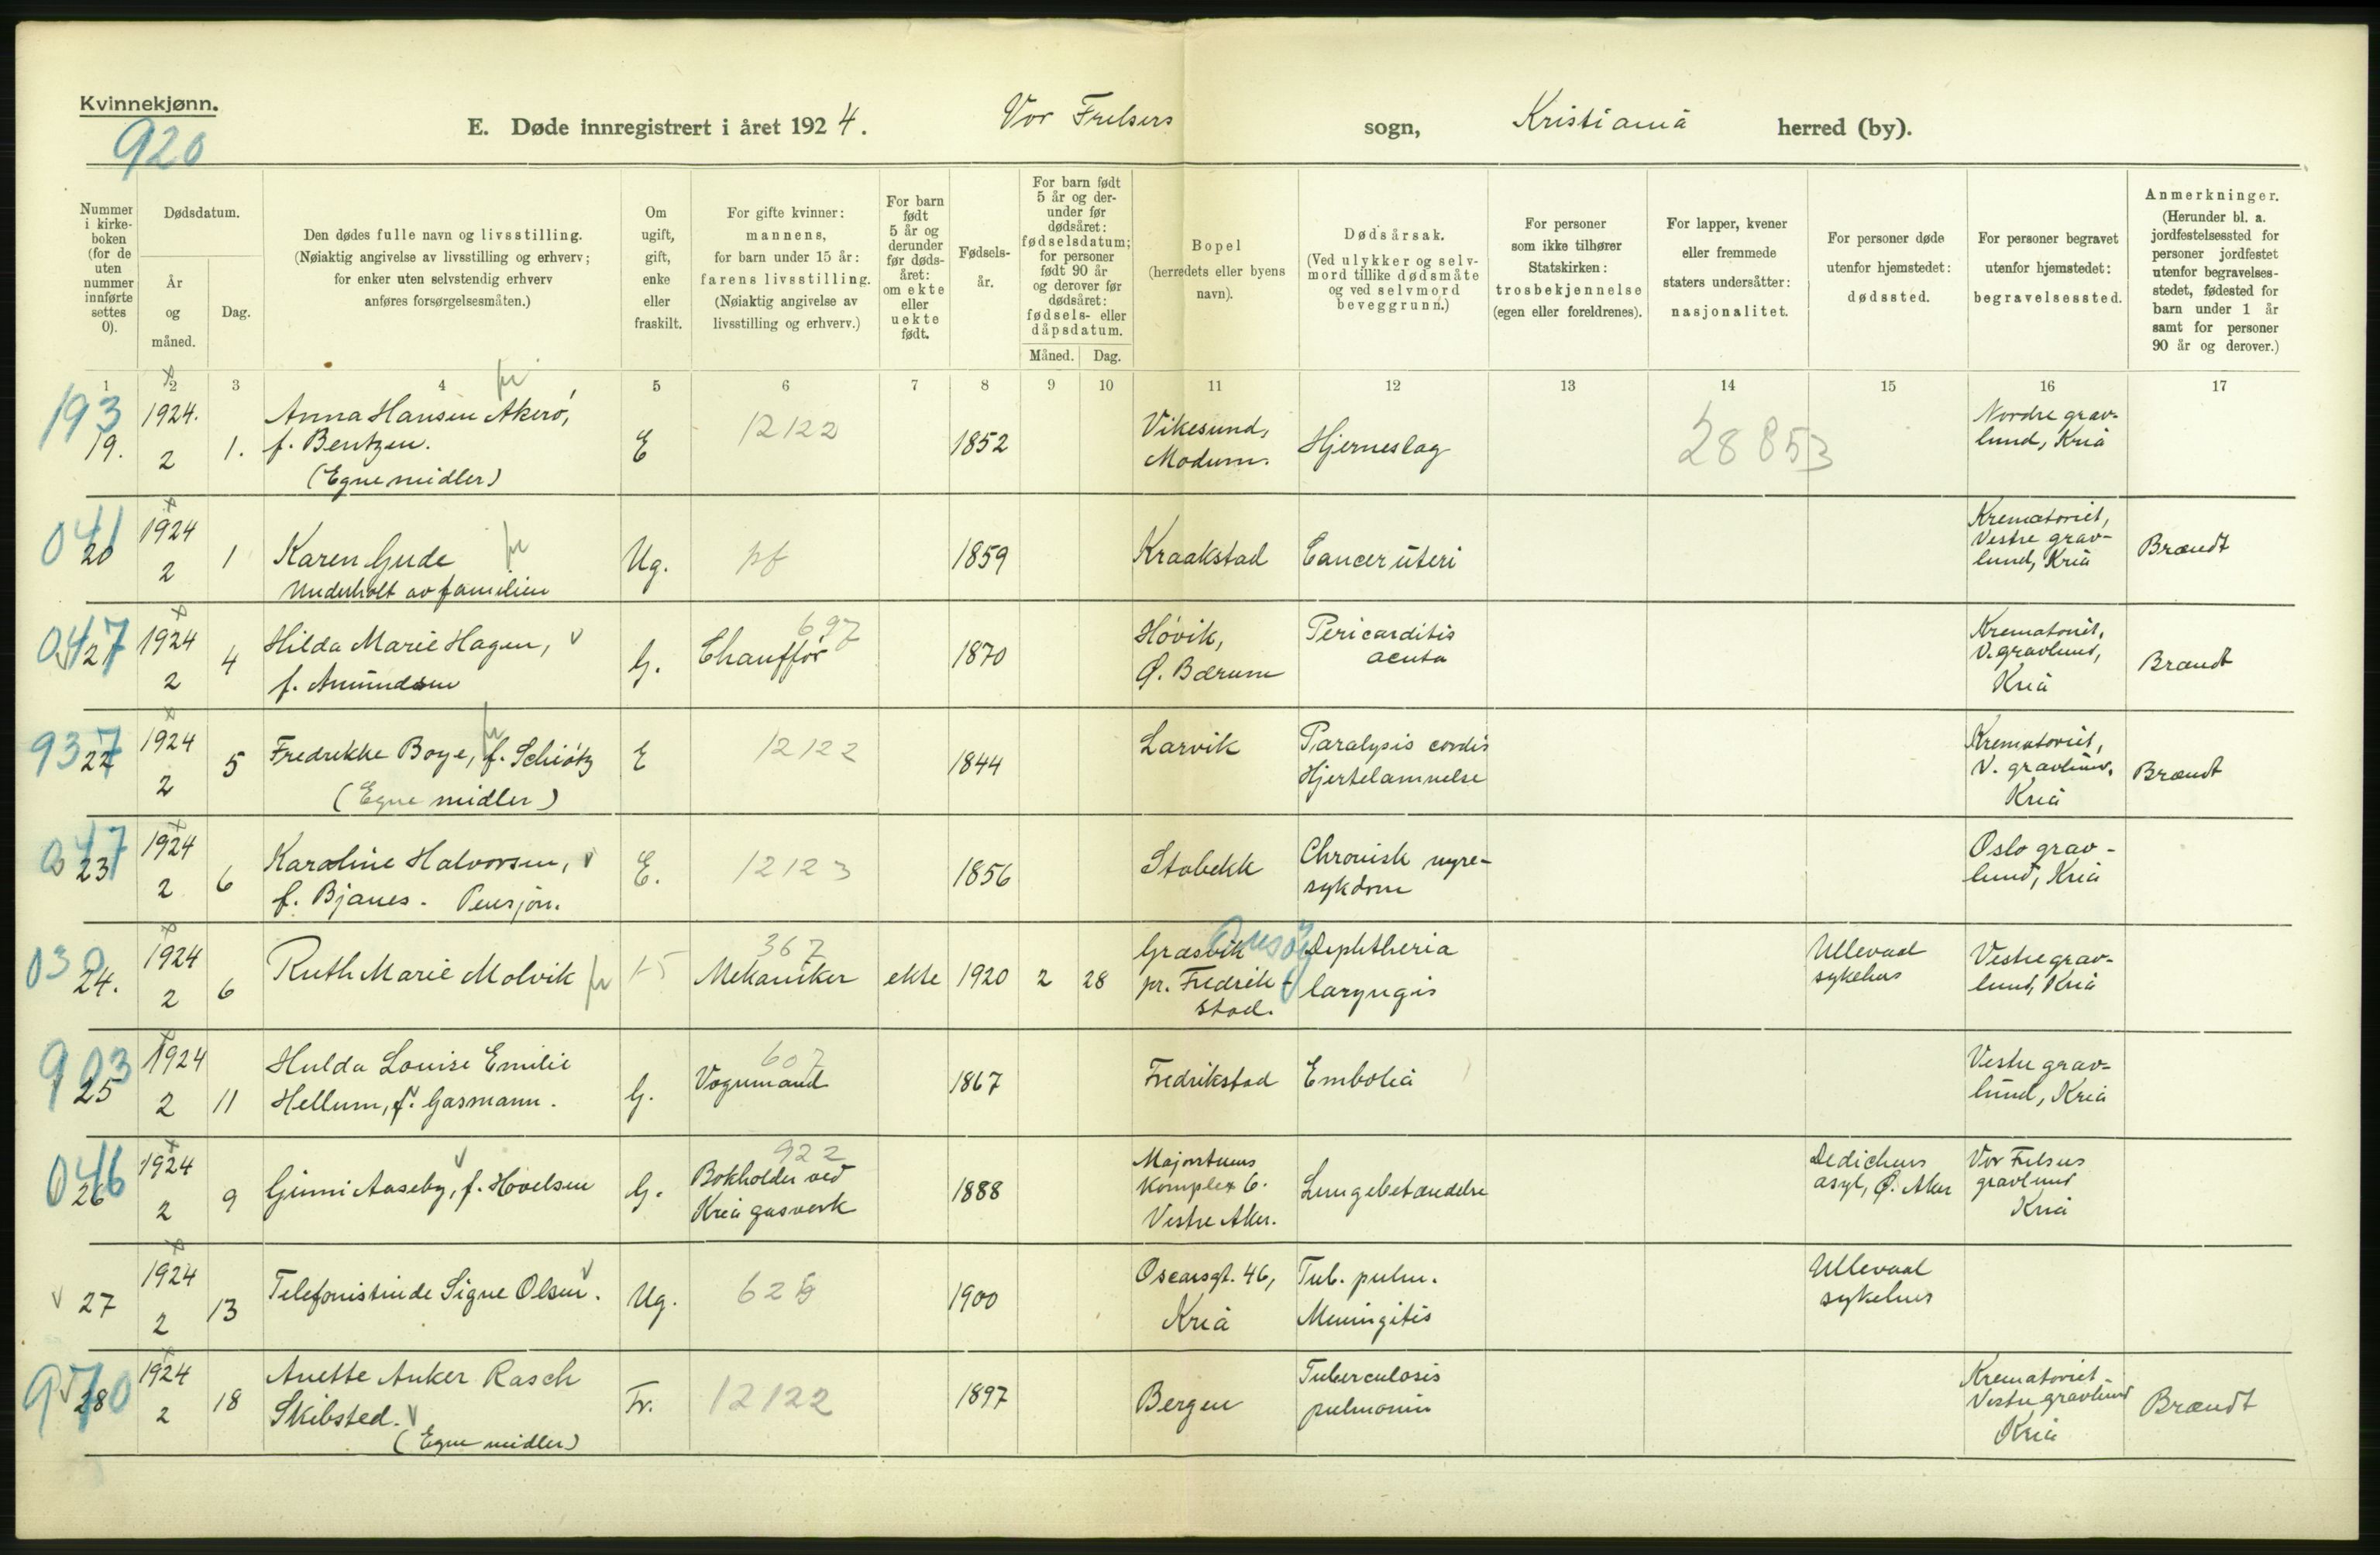 Kvinnekjønn.
920
E. Døde innregistrert i året 1924.
Vor Frelsers
sogn,
Kristiania
herred (by).
Nummer
i kirke-
boken
(for de
uten
nummer
innførte
settes
0).
Dødsdatum.
År
og
måned.
Dag.
Den dødes fulle navn og livsstilling.
(Nøiaktig angivelse av livsstilling og erhverv;
for enker uten selvstendig erhverv
anføres forsørgelsesmåten.)
Om
ugift,
gift,
enke
eller
fraskilt.
For gifte kvinner:
mannens,
for barn under 15 år:
farens livsstilling.
(Nøiaktig angivelse av
livsstilling og erhverv.)
For barn
født
5 år og
derunder
før døds-
året:
om ekte
eller
uekte
født.
Fødsels-
år.
For barn født
5 år og der-
under før
dødsåret:
fødselsdatum;
for personer
født 90 år
og derover før
dødsåret:
fødsels- eller
dåpsdatum.
Måned. Dag.
Bopel
(herredets eller byens
navn).
Dødsårsak.
(Ved ulykker og selv-
mord tillike dødsmåte
og ved selvmord
beveggrunn.)
For personer
som ikke tilhører
Statskirken:
trosbekjennelse
(egen eller foreldrenes).
For lapper, kvener
eller fremmede
staters undersåtter:
nasjonalitet.
For personer døde
utenfor hjemstedet:
dødssted.
For personer begravet
utenfor hjemstedet:
begravelsessted.
Anmerkninger.
(Herunder bl. a.
jordfestelsessted for
personer jordfestet
utenfor begravelses-
stedet, fødested for
barn under 1 år
samt for personer
90 år og derover.)
1 2 3 4 5 6 7 8 9 10 11 12 13 14 15 16 17
193
19.
1924.
2
1.
Anna Hansen Akerö,
f. Bentzen.
(Egne midler)
E
12122
1852
Vikesund,
Modum.
Hjerneslag
28853
Nordre grav-
lund, Kria
041
20
1924
2
1
Karen Gude
Underholt av familien
Ug.
pf
1859
Kraakstad
Cancer uteri
Krematoriet,
Vestre grav-
lund, Kria
Brandt
047
21
1924
2
4
Hilda Marie Hagen,
f. Amundsen
G.
697
Chauffør
1870
Høvik,
Ø. Bærum
Pericarditis
acuta
Krematoriet,
V. gravlund,
Kria
Brandt
937
22
1924
2
5
Fredrikke Boye, f. Schiøtz
(Egne midler)
E
12122
1844
Larvik
Paralysis cordis
Hjertelammelse
Krematoriet,
V. gravlund,
Kria
Brandt
047
23
1924
2
6
Karoline Halvorsen,
f. Bjanes. Pensjon.
E.
12123
1856
Stabekk
Chronisk nyre-
sykdom
Oslo grav-
lund, Kria
030
24.
1924
2
6
Ruth Marie Molvik
15
367
Mekaniker
ekte
1920
2
28
Græsvik
pr. Fredrik-
stad.
Onsøy
Diphtheria
laryngis
Ullevaal
sykehus
Vestre grav-
lund, Kria
903
25
1924
2
11
Hulda Louise Emilie
Hellum, f. Gasmann.
G.
607
Vognmand
1867
Fredrikstad
Embolia
Vestre grav-
lund, Kria
046
26
1924
2
9
Ginni Aaseby, f. Hovelsen
G.
922
Bokholder ved
Kria gasverk
1888
Majorstuens
Komplex 6.
Vestre Aker.
Lungebetændelse
Dedichens
asyl, Ø. Aker
Vor Frelsers
gravlund
Kria
27
1924
2
13
Telefonistinde Signe Olsen.
Ug.
1900
Oscarsgt. 46,
Kria
Tub. pulm.
Meningitis
Ullevaal
sykehus
970
28
1924
2
18
Anette Anker Rasch
Skibsted.
(Egne midler)
Fr.
12122
1897
Bergen
Tuberculosis
pulmonum
Krematoriet
Vestre gravlund
Kria
Brandt